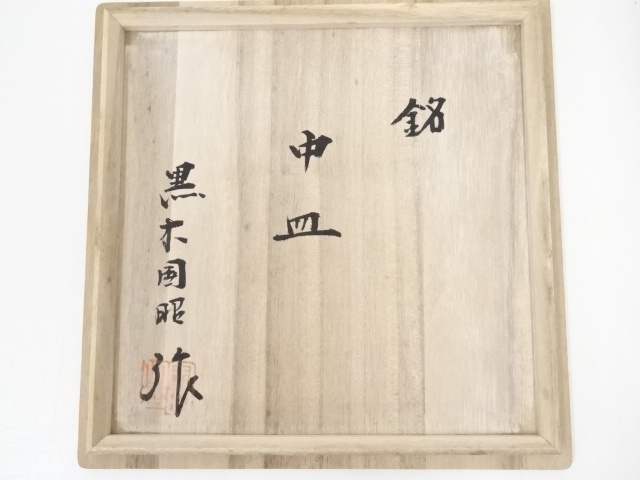 銘
中皿
黒木国昭 作